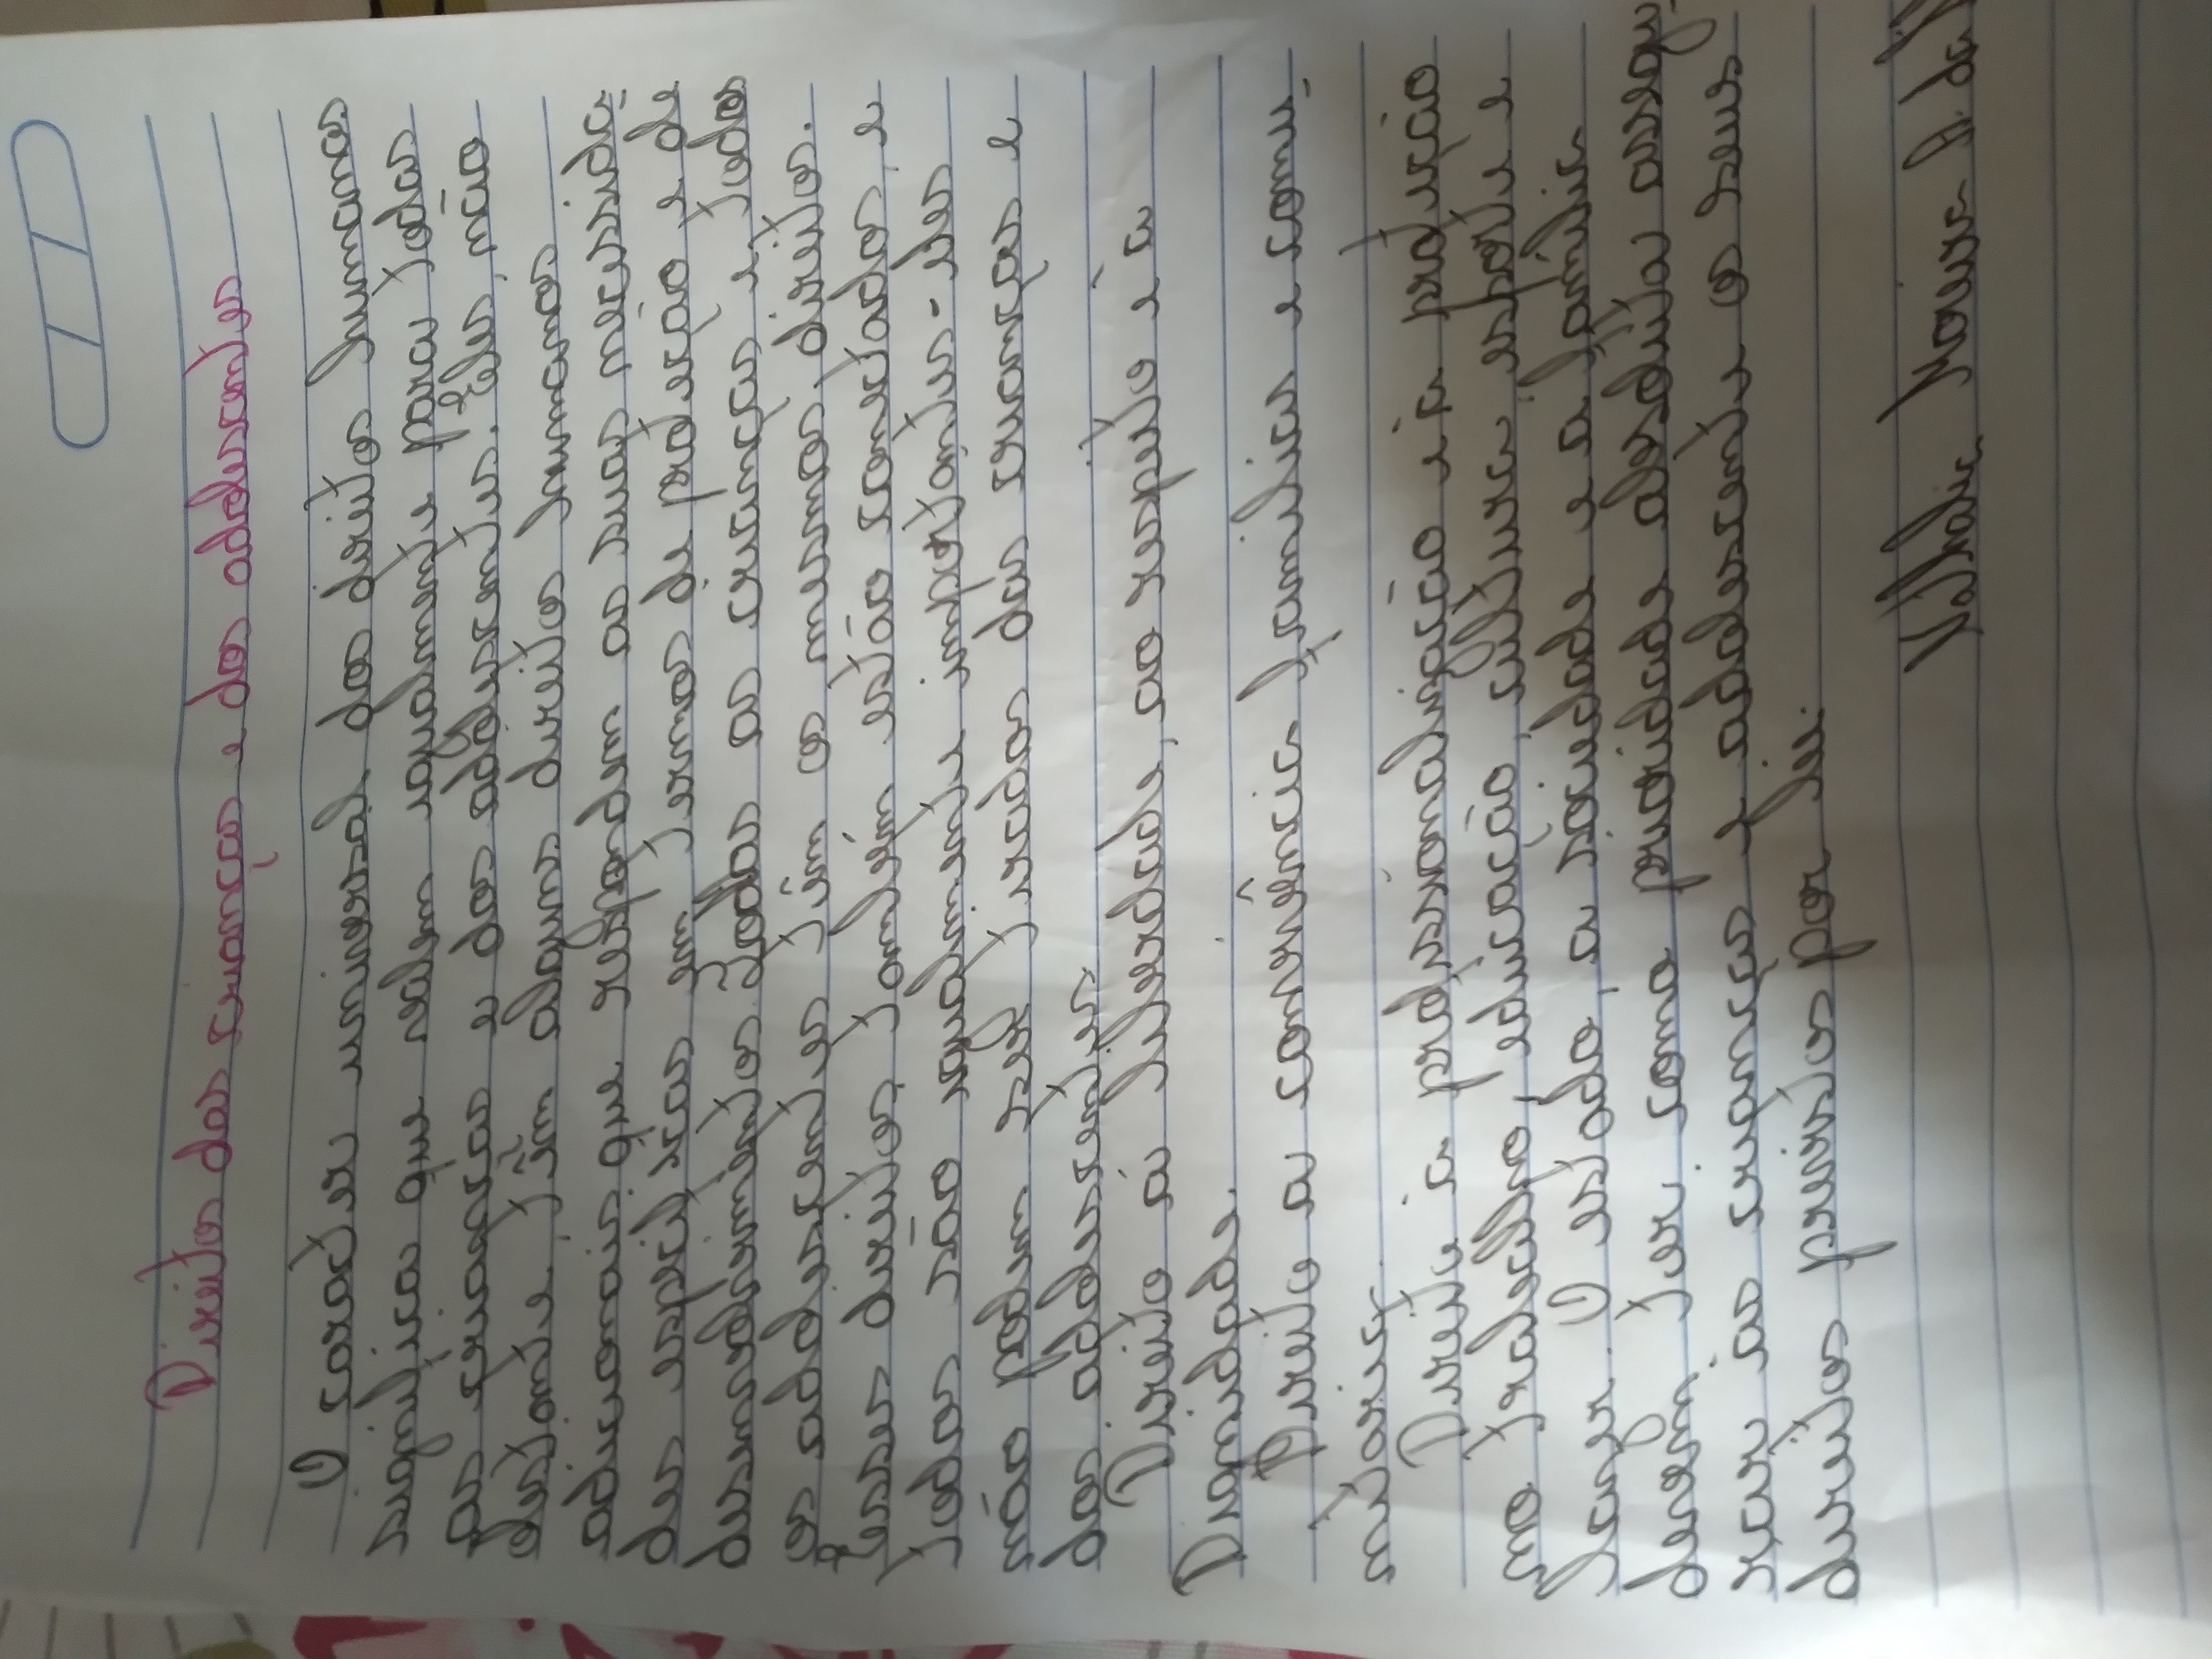 Direitos das crianças e dos adolescentes
O caracter universal dos direitos humanos
significa que valem igualmente para todas
as crianças e dos adolescentes. Eles, não
obstante, têm alguns direitos humanos
adicionais que respondem as suas necessida-
des especificas em termos de proteção e de
desenvolvimentos. Todas as crianças e todos
os adolescentes têm os mesmos direitos.
Esses direitos também estão conectados e
todos são igualmente importantes - eles
não podem ser tirados das crianças e
dos adolescentes
Direito á liberdade, ao respeito e à
Dignidade.
Direito a convivência familiar e comu-
nitaria.
Direito à profissionalização e à proteção
no trabalho, educação, cultura, esporte e
lazer. O estado, a sociedade e a família
devem ter como prioridade absoluta assegu-
rar às crianças e adolescente os seus
direitos previstos por lei.
Nathalia Moreira A. da